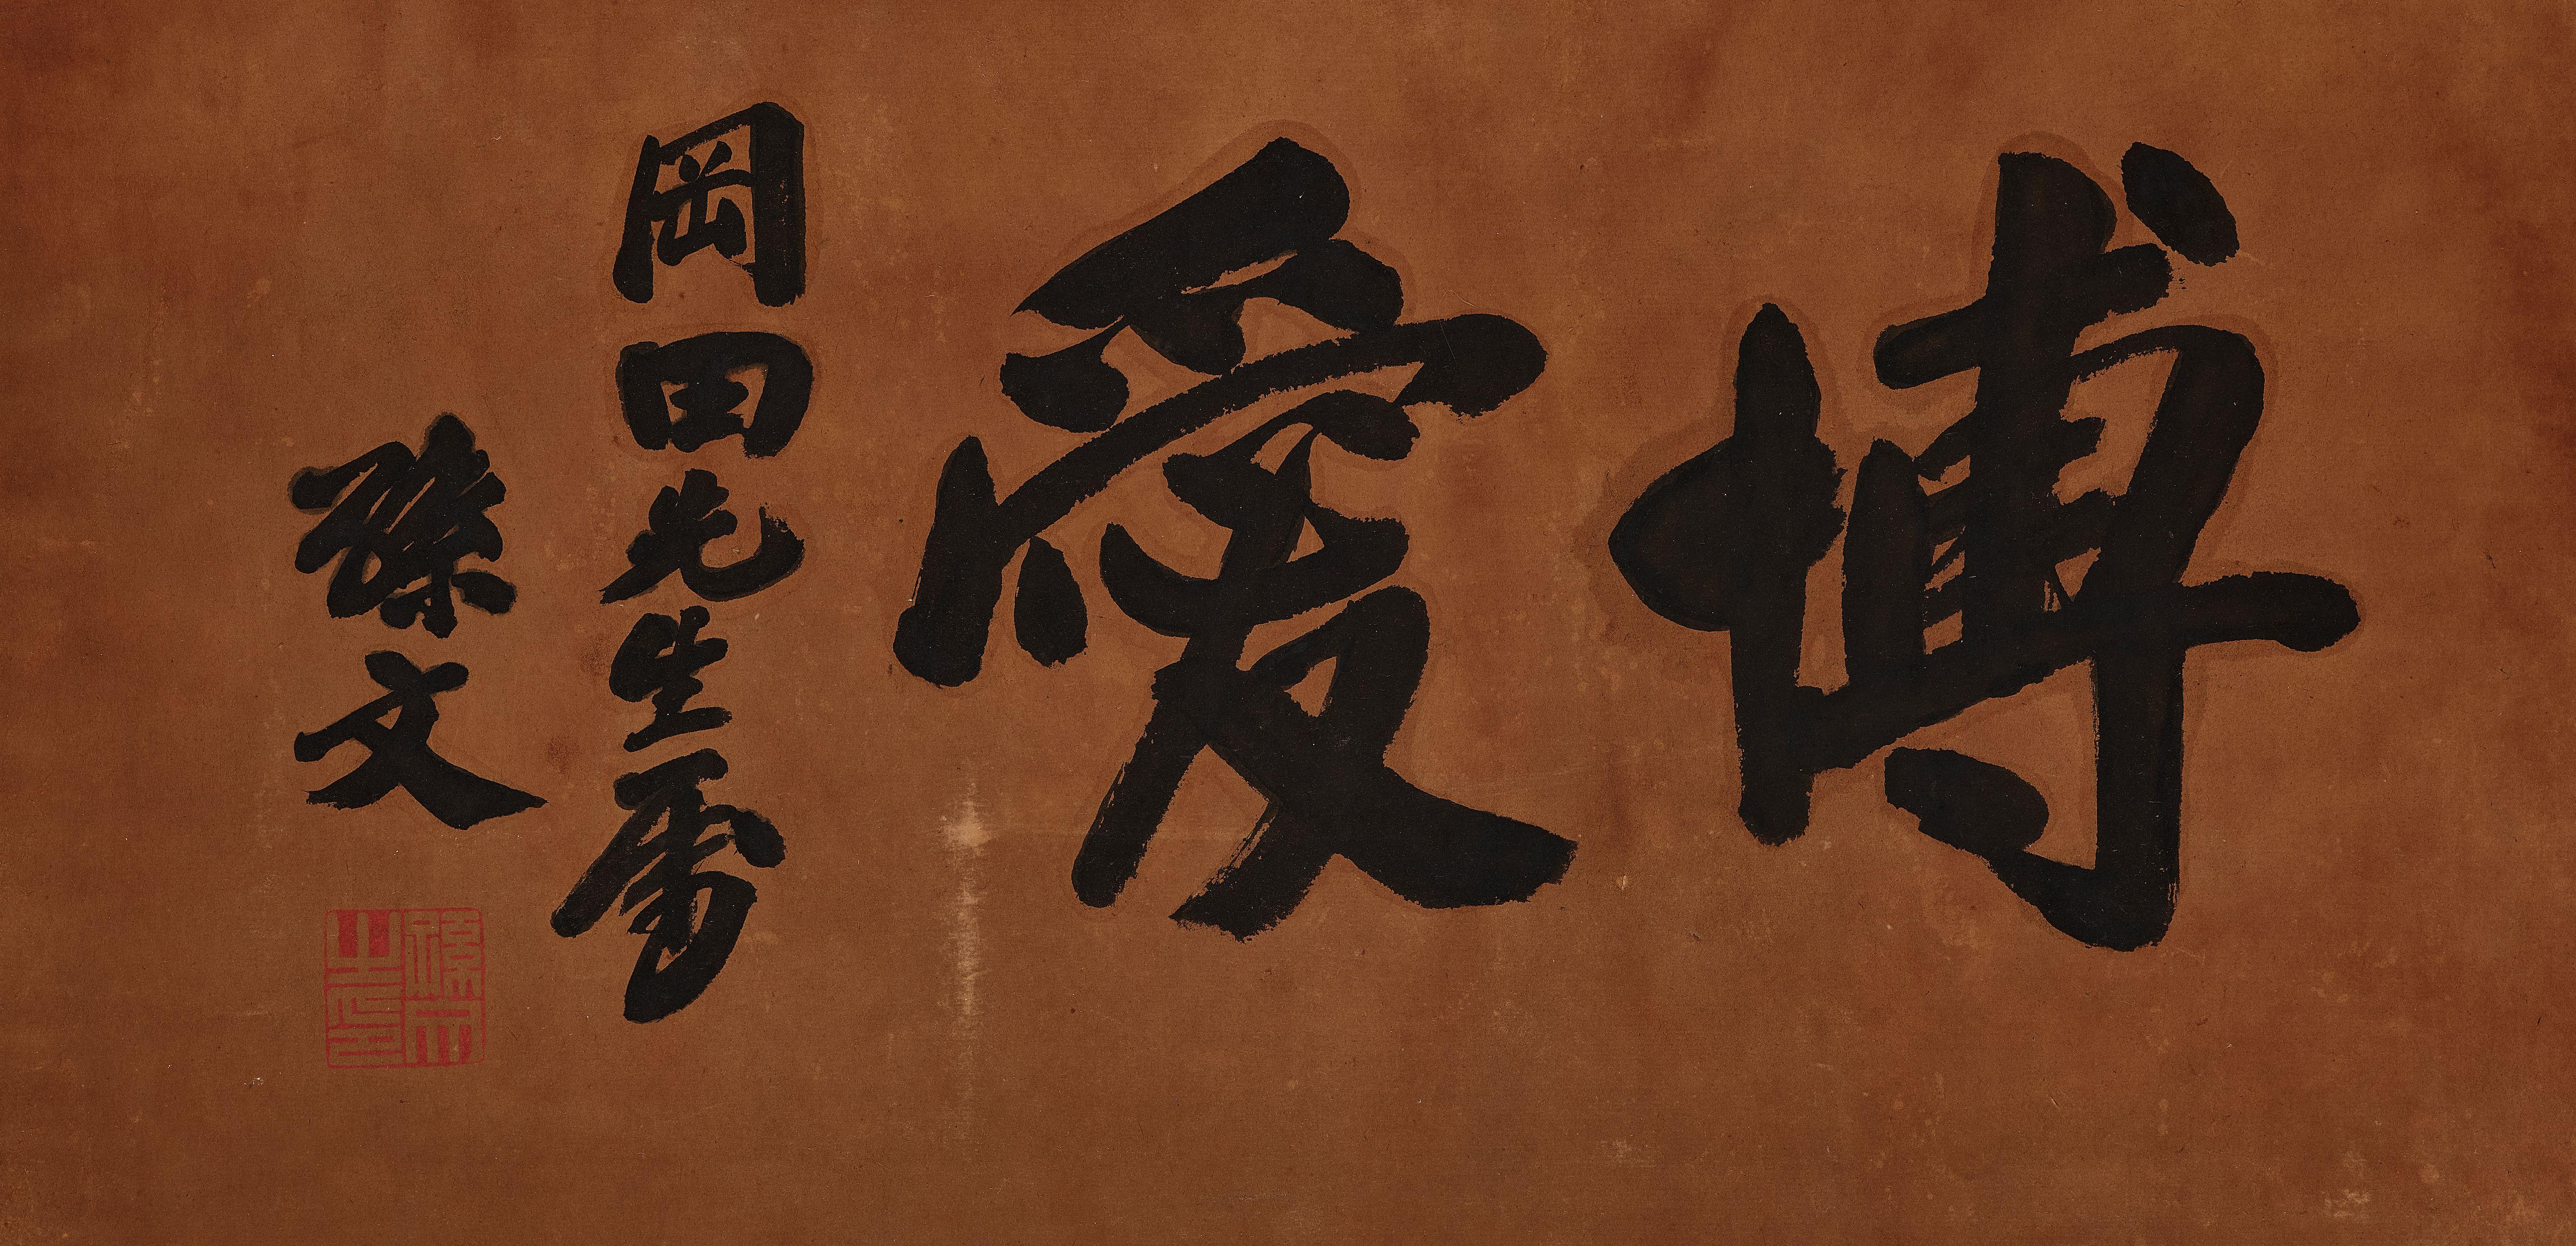 博愛
岡田先生屬
孫文
孫文之印